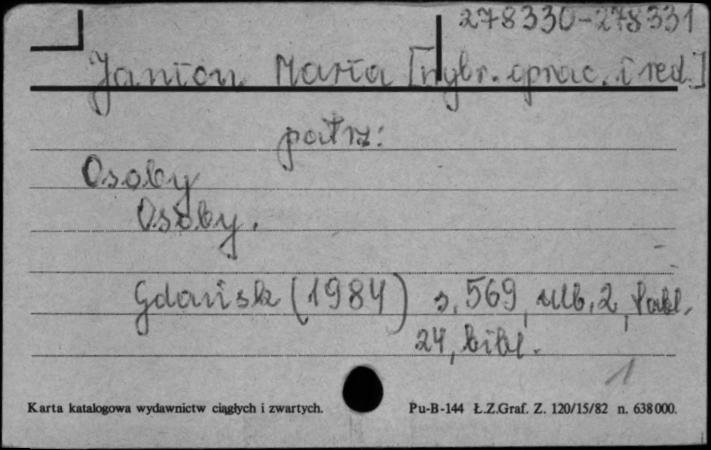 278330-278331
Janion Maria [wybr. oprac. i red.]
patrz:
Osoby
Osoby.
Gdańsk (1984) s. 569, nlb. 2, tabl.
24, bibl.
1
Karta katalogowa wydawnictw ciągłych i zwartych.
Pu-B-144 Ł.Z.Graf. Z. 120/15/82 n. 638000.